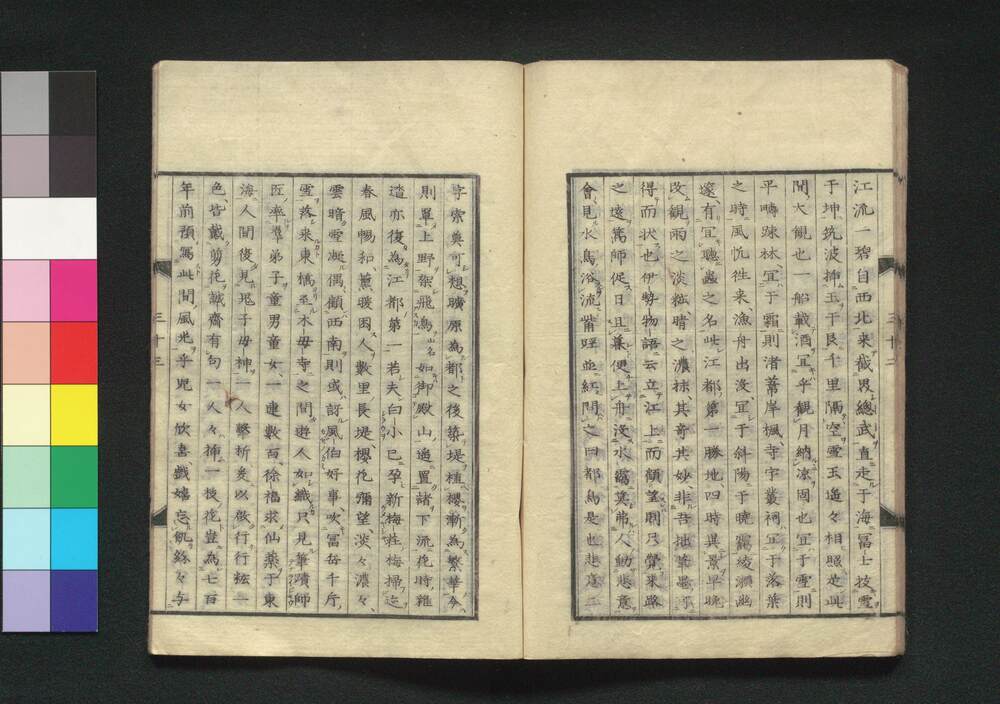 江流一碧自西北来截界總武直走于海冨士技雪
于坤筑波挿玉于艮千里隔空雪玉遙々相照楚與
間大観也一船載酒宜乎観月納凉固也宜于雪則
平疇踈林宜于霜則渚葦岸楓寺宇叢祠宜于落葉
之時風恍徃来漁舟出没宜于斜陽于暁靄綾瀬幽
邃有宜聴蟲之名吐江都第一勝地四時異景早晩
改観雨之淡粧晴之濃抹其奇其妙非吾拙筆墨可
得而状也伊勢物語云立江上而顧望則只覺来路
之遠篙師促日且暮便上舟没水靄裏弗人動悲意
會見水鳥浴流觜呼並紅問之曰都鳥是也
三十二
字索奠可想曠原為都之後築堤植櫻漸為繁華今
則單上野架飛鳥山名如御殿山遙置諸下流花時雜
遝亦復為江都第一若夫白小已孕新梅粧梅掃迄
春風暢和薫暖困人數里長堤櫻花彌望淡々濃々
雲暗雪凝偶顧西南則或訝風伯好事吹冨岳千斤
雪落来東橋至木母寺之間遊人如織只見筆蹟師
匠率羣弟子童男童女一連數百徐福求仙薬于東
海人間復見兆子母神一人撃柝爰以啟行行鉉一
色皆戴剪花誠齋有句一人々挿一枝花豈為七百
年前預冩此間風光乎兒女忻喜戯嬉忘飢飱々与
三十三